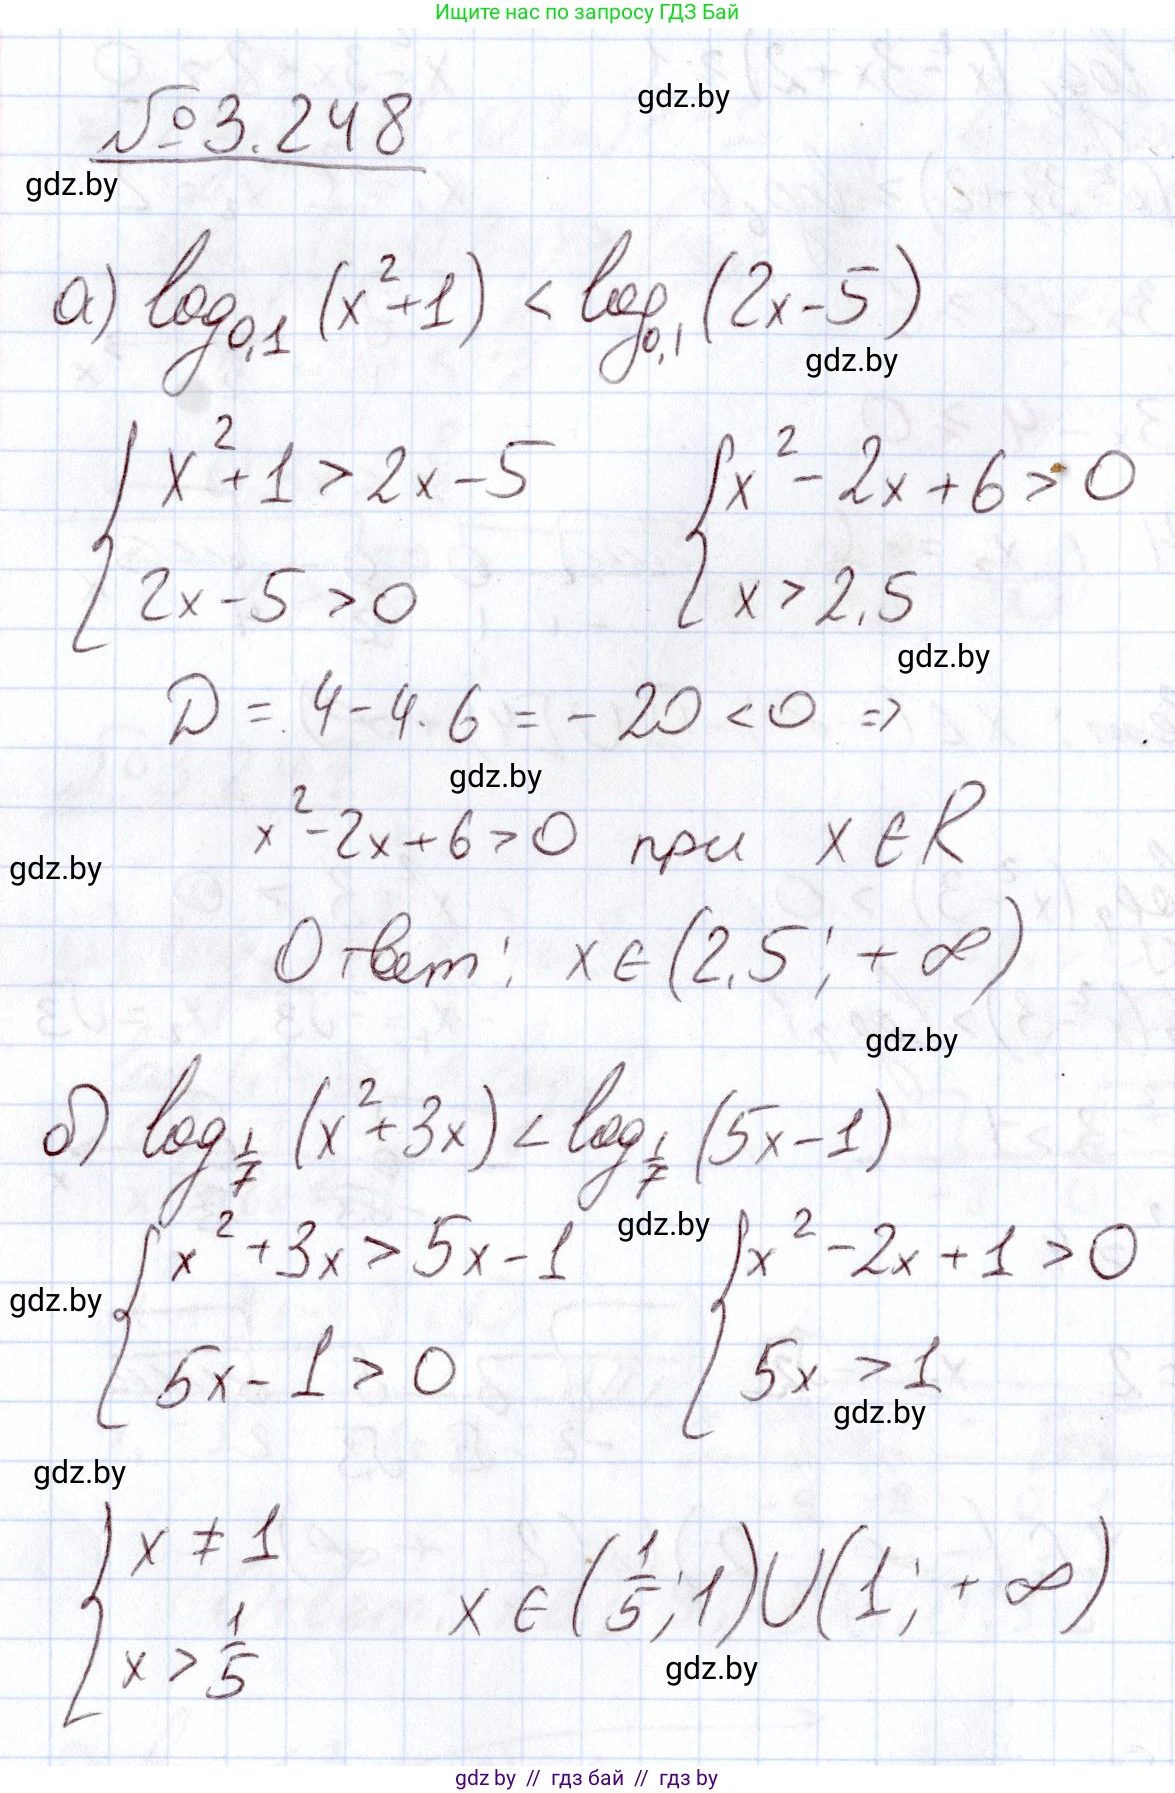 Ищите нас по запросу ГДЗ Бай
gdz.by
№3.248
gdz.by
а) log₀,₁ (x²+1) < log₀,₁ (2x-5)
gdz.by
{ x²+1 > 2x-5 { x²-2x+6 > 0
2x-5 > 0 x > 2,5
gdz.by
D = 4-4·6 = -20 < 0 ⇒
gdz.by
x²-2x+6 > 0 при x ∈ R
gdz.by
Ответ: x ∈ (2,5; +∞)
gdz.by
б) log_{1/7} (x²+3x) < log_{1/7} (5x-1)
gdz.by
{ x²+3x > 5x-1 { x²-2x+1 > 0
gdz.by
5x-1 > 0 5x > 1
gdz.by
gdz.by
{ x ≠ 1 x ∈ (1/5; 1) ∪ (1; +∞)
x > 1/5
gdz.by
gdz by // гдз бай // гдз by